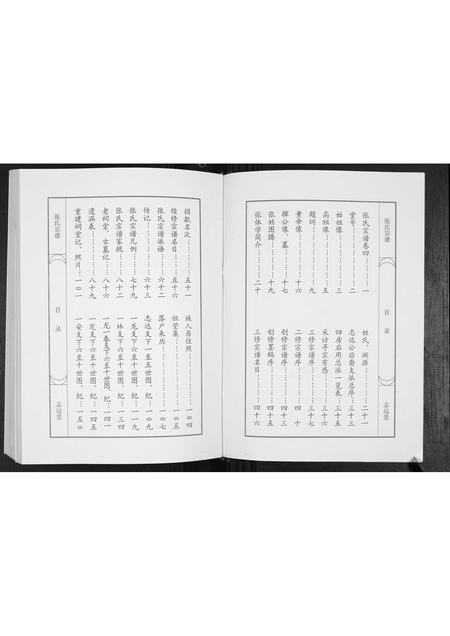 张氏宗谱
目录
志远堂
张氏宗谱卷四……一
堂号……二
始祖像……三
高祖像……四
题词……九
黄帝像……十六
挥公像、墓……十七
张姓图腾……十八
张体学简介……二十
姓氏、渊源……二十一
志远公后裔支派总序……三十三
四房启用总派一览表……三十五
采访寻宗有感……三十六
三修宗谱序……三十七
二修宗谱序……四十
创修宗谱序……四十二
创修墨稿序……四十四
三修宗谱名目……四十六
捐款名次……五十一
续修宗谱名目……五十六
张氏宗谱派语……六十二
传记……六十三
张氏宗谱凡例……七十九
张氏宗谱家规……八十二
老祠堂、古墓记……八十六
遗漏表……八十九
重建祠堂记、照片……一〇一
族人居住照……一〇四
祖茔集……一〇五
落户来历……一〇七
志远支下一至五世图、纪……一〇九
一龙支下六至十世图、纪……一一九
一林支下六至十世图、纪……一三一
一龙一春支下六至十世图、纪……一四一
一定支下六至十世图、纪……一四五
一安支下六至十世图、纪……一五〇
张氏宗谱
目录
志远堂